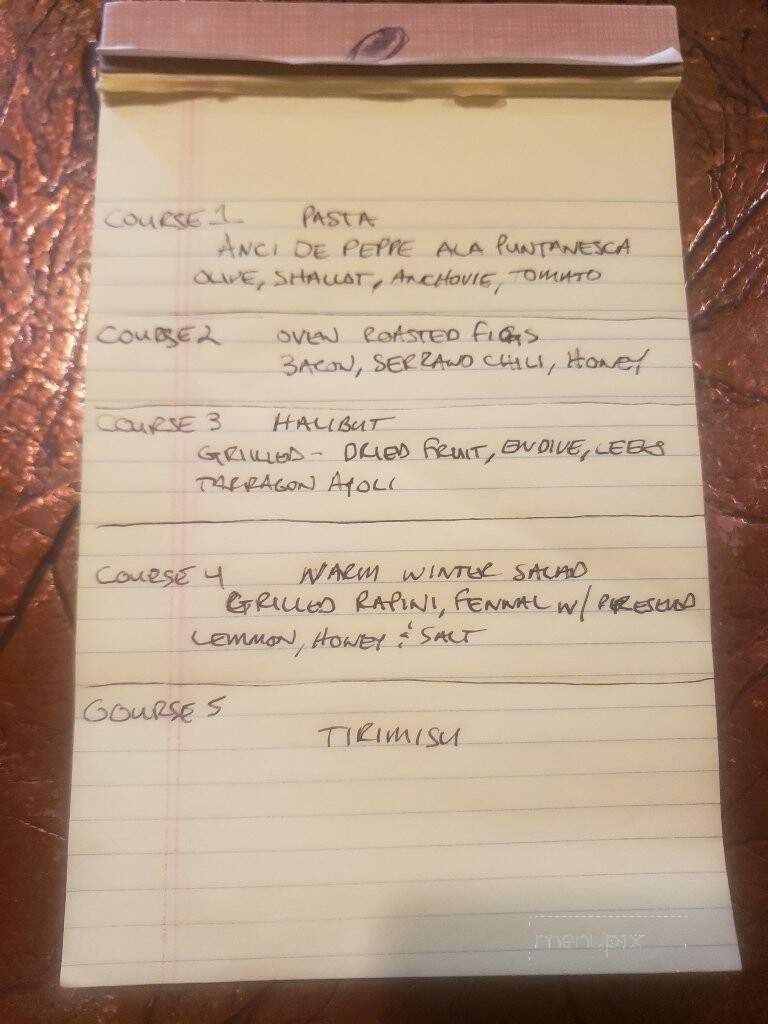 COURSE 1 PASTA
ANCI DE PEPPE ALA PUNTANESCA
OLIVE, SHALLOT, ANCHOVIE, TOMATO
COURSE 2 OVEN ROASTED FIGS
BACON, SERRANO CHILI, HONEY
COURSE 3 HALIBUT
GRILLED - DRIED FRUIT, ENDIVE, LEEKS
TARRAGON AJOLI
COURSE 4 WARM WINTER SALAD
GRILLED RAPINI, FENNAL W/ PERESERVED
LEMMON, HONEY & SALT
COURSE 5
TIRIMISU
menupix